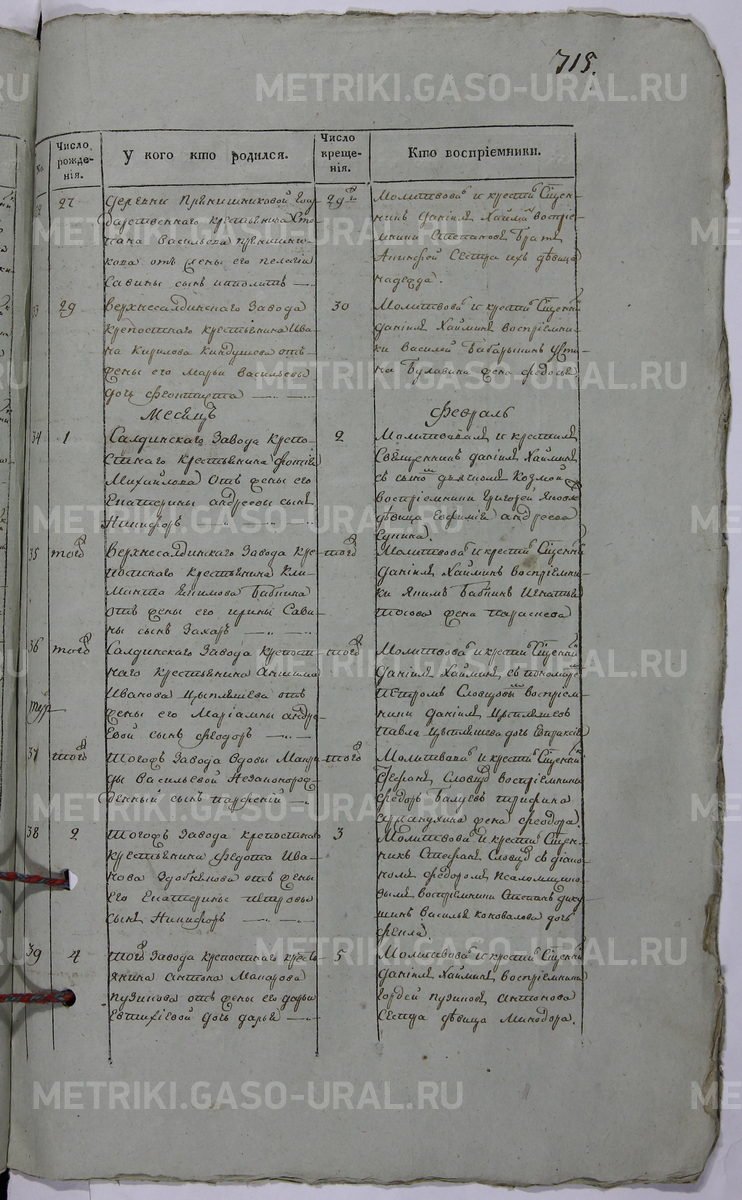 715.
Число рожденія.
У кого кто родился.
Число крещенія.
Кто воспріемники.
27
деревни Прянишниковой Госу-
дарственнаго крестьянина Сте-
пана Васильева Прянишни-
кова отъ жены его Пелагіи
Савины сынъ Ипполитъ
29
Молитвовалъ и крестилъ Священ-
никъ Даніилъ Хайминъ воспріе-
мники Степановъ Братъ
Сестра ихъ девица
надежда.
29
Верхнесалдинскаго Завода
крепостнаго крестьянина Ива-
на Кирилова отъ
жены его Марьи Васильевы
дочь Феоктиста
30
Молитвовалъ и крестилъ Священникъ
Даніилъ Хайминъ воспріемни-
ки Василей Бабарыкинъ Усти-
на Булавина жена Федосья
Месяцъ
Февраль
34
1
Салдинскаго Завода крепо-
стнаго Крестьянина Фотія
Михайлова отъ жены его
Екатерины Андреевы сынъ
Никифоръ
2
Молитвовалъ и крестилъ
Священникъ Даніилъ Хайминъ
съ дьячкомъ Козмой
воспріемники Григорей
девица Евфимія Андреева
35
тогоже
Верхнесалдинскаго Завода кре-
постнаго Крестьянина Кли-
мента Екимова Бабкина
отъ жены его Ирины Сави-
ны сынъ Захаръ
тогоже
Молитвовалъ и крестилъ Священникъ
Даніилъ Хайминъ воспріемни-
ки Якимъ Бабкинъ Игнатья
жена Параскева
36
тогоже
Салдинскаго Завода крепост-
наго крестьянина Акима
Иванова Цыпляшева отъ
жены его Маріамны Андре-
евой сынъ Феодоръ
тогоже
Молитвовалъ и крестилъ Священникъ
Даніилъ Хайминъ съ пономаремъ
Петромъ Словцовымъ воспріем-
ники Даніилъ Цыпляшевъ
Павла Цыпляшева дочь Евпраксія
37
тогоже
Тогожъ Завода Вдовы Мавры
Васильевой Незаконорож-
денный сынъ Парфеній
тогоже
Молитвовалъ и крестилъ Священникъ
Стефанъ Словцовъ воспріемники
Федоръ Балуевъ Трифона
жена Феодора.
38
2
Тогожъ Завода крепостнаго
Крестьянина Федота Ива-
нова отъ жены
его Екатерины Петровы
сынъ Никифоръ
3
Молитвовалъ и крестилъ Священ-
никъ Стефанъ Словцовъ съ діако-
номъ Феодоромъ Псаломщико-
вымъ воспріемники Степанъ
Василья Коновалова дочь
Фекла.
39
4
Тогожъ Завода крепостнаго кресть-
янина Антона Макарова
Пузикова отъ жены его Дарьи
Евтихіевой дочь Дарья
5
Молитвовалъ и крестилъ Священникъ
Даніилъ Хайминъ воспріемники
Гордей Пузиковъ Антонова
Сестра девица Минодора.
METRIKI.GASO-URAL.RU